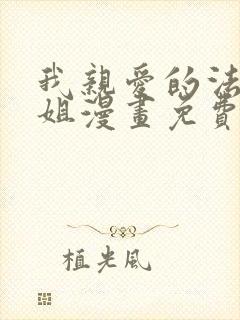 我親愛的法
姐漫畫免費
植光風